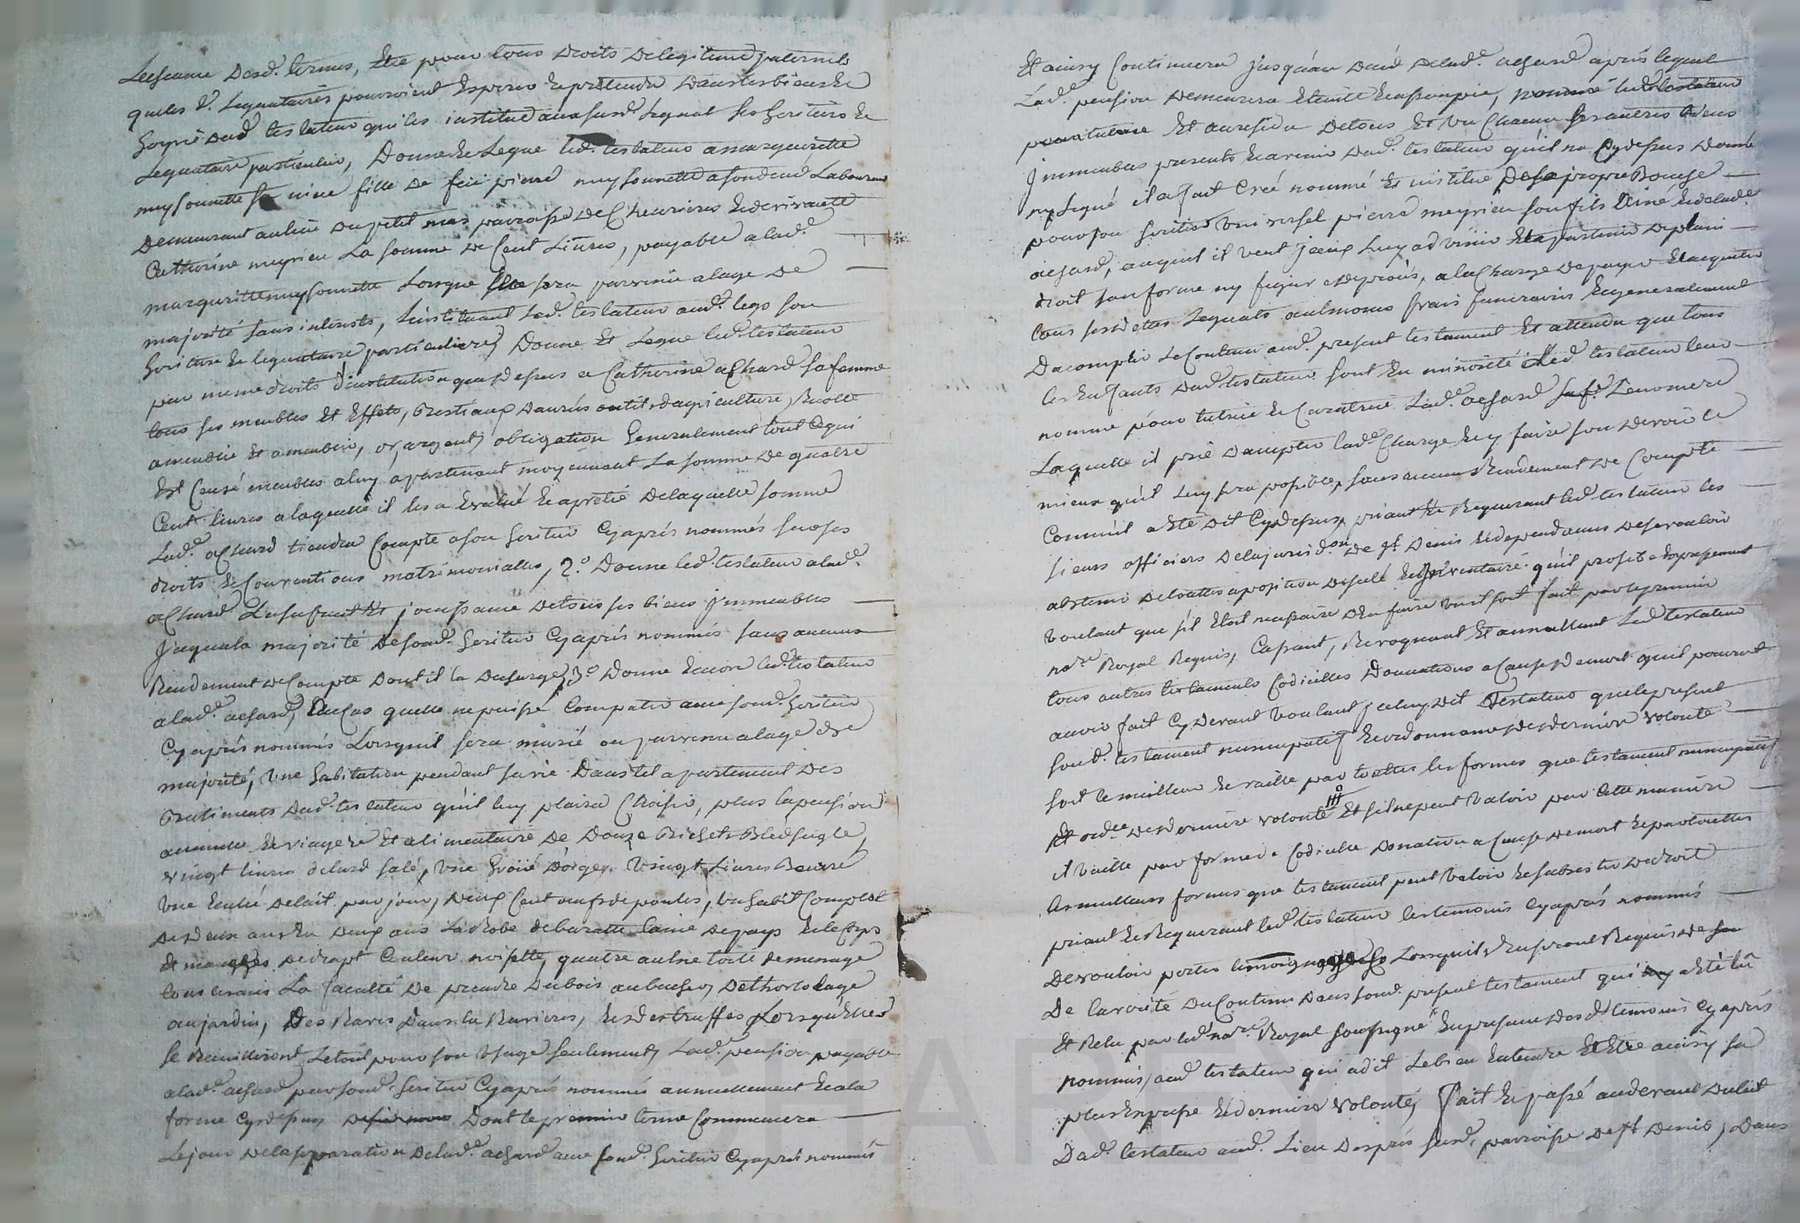 Lesceance desd. termes, Et ce pour tous droits de legitime paternels
que les d. Legataires pourroient Esperer & pretendre dans les biens &
hoyrie dud. testateur qu'il les institue aux susd. Leguat ses heritiers &
Leguataire particulier, Donne & Legue led. testateur a margueritte
muysounette sa niece fille de feu pierre muysounette a son decé Laboureur
demeurant au lieu du petit mas parroisse de Cheurieres & de vivante
Catherine meyrieu La somme de Cent Livres, payable a lad.
margueritte muysounette Lorsque Elle sera parvenue a lage de
majorité sans interests, Linstituant Led. testateur aud. legs son
heritiere & leguataire particuliere, Donne Et Legue led. testateur
par meme droits d'institution que dessus a Catherine achard sa femme
tous ses meubles Et Effets, Bestiaux danrés outils d'agriculture, Recolte
ameublie Et ameublir, or, argent, obligation Generalement tout ce qui
Est Censé meubles a luy apartenant moyennant La somme de quatre
Cent livres a laquelle il les a Evalué & apretié de laquelle somme
Lad. achard tiendra Compte a son heritier Cyaprés nommés sur ses
droits & Conventions matrimonialles, 2.° Donne led. testateur a lad.
achard Lusufruit & jouissance de tous ses biens jmmeubles
jusqu'a la majorité de sond. heritier Cyaprés nommés sans aucun
Rendement de Compte dont il la decharge, 3.° Donne Encore led. testateur
a lad. achard, En Cas quelle ne puisse Compatir avec sond. heritier
Cyaprés nommés Lorsquil sera marié ou parvenu a lage de
majorité, Une habitation pendant sa vie dans tel apartement des
Batiments dud. testateur qu'il luy plaira Choisir, plus la pension
annuelle & viagere Et alimentaire de Douze Bichets Bled seigle,
vingt livres de lard salé, Une hemine d'orge, vingt Livres Beurre
Une Ecuelé de lait par jour, deux Cent oeufs de poules, Un habit Complet
de deux ans En deux ans La Robe de laine de pays & le Corps
Et manches de drapt Couleur noisette, quatre aulne toile de menage
tous les ans La faculté de prendre du bois au bucher, de lhortolage
au jardin, Des Raves dans la Raviere, & des truffes Lorsqu'Elles
se Recuilliront, Le tout pour son Usage seulement, Lad. pension payable
a lad. achard par sond. heritier Cyaprés nommés annuellement & a la
forme Cydessus dont le premier terme Commencera
Le jour de la separation de lad. achard avec sond. heritier Cyaprés nommés
Et ainsy Continuera jusqu'au decé de lad. achard aprés lequel
Lad. pension demeurera Eteinte & assoupie, led. testateur
Et au residu de tous Et Un Chacun ses autres biens
jmmeubles presents & avenir dud. testateur qu'il na Cydessus donné
ny Legué il a fait Creé nommé Et institué de sa propre Bouche
pour son heritier Universel pierre meyrieu son fils Ainé & de lad.
achard, auquel il veut jceux Luy advenir & apartenir de plein
droit sans forme ny figure de procés, a la Charge de payer & acquitter
tous ses dettes Leguats aulmones frais funeraires & generalement
Dacomplir le Contenu aud. present testament Et attendu que tous
les Enfants dud. testateur sont En minorité Led. testateur leur
nomme pour tutrice & Curatrice Lad. achard sa fe. Leur mere
Laquelle il prie d'accepter lad. Charge & y faire son devoir le
mieux qu'il Luy sera possible, sans aucun Rendement de Compte
Comme il a Eté dit Cydessus, priant & Requerant led. testateur les
sieurs officiers de la jurisd.on de St. Denis & dependances de se vouloir
abstenir de touttes aposition de scelé & inventaire qu'il prohibe Expressement
Voulant que s'il Etoit nessaire d'En faire Un il soit fait par le premier
no.re Royal Requis, Cassant, Revoquant Et annullant Led. testateur
tous autres testaments Codicilles Donnations a Cause de mort quil pourroit
avoir fait Cy devant Voulant jceluy dit Testateur que le present
soit son testament nuncupatif & ordonnance de derniere volonté
soit le meilleur & vaille par touttes les formes que testament nuncupatif
Et ord.ce de derniere volonté Et s'il ne peut Valoir par Cette maniere
il Vaille par forme de Codicille Donation a Cause de mort & par touttes
les meilleurs formes que testament peut Valoir & subsister de droit
priant & Requerant led. testateur les temoins Cyaprés nommés
De vouloir porter temoignage Lorsquils En seront Requis de
De la verité du Contenu dans sond. present testament qui luy a Eté lû
Et Relu par led. no.re Royal soussigné En presence desd. temoins Cyaprés
nommés, aud. testateur qui a dit Le bien Entendre Et Etre ainsy sa
plus Expresse & derniere volonté, fait & passé au devant du lit
Dud. testateur aud. Lieu parroisse de St. Denis, Dans